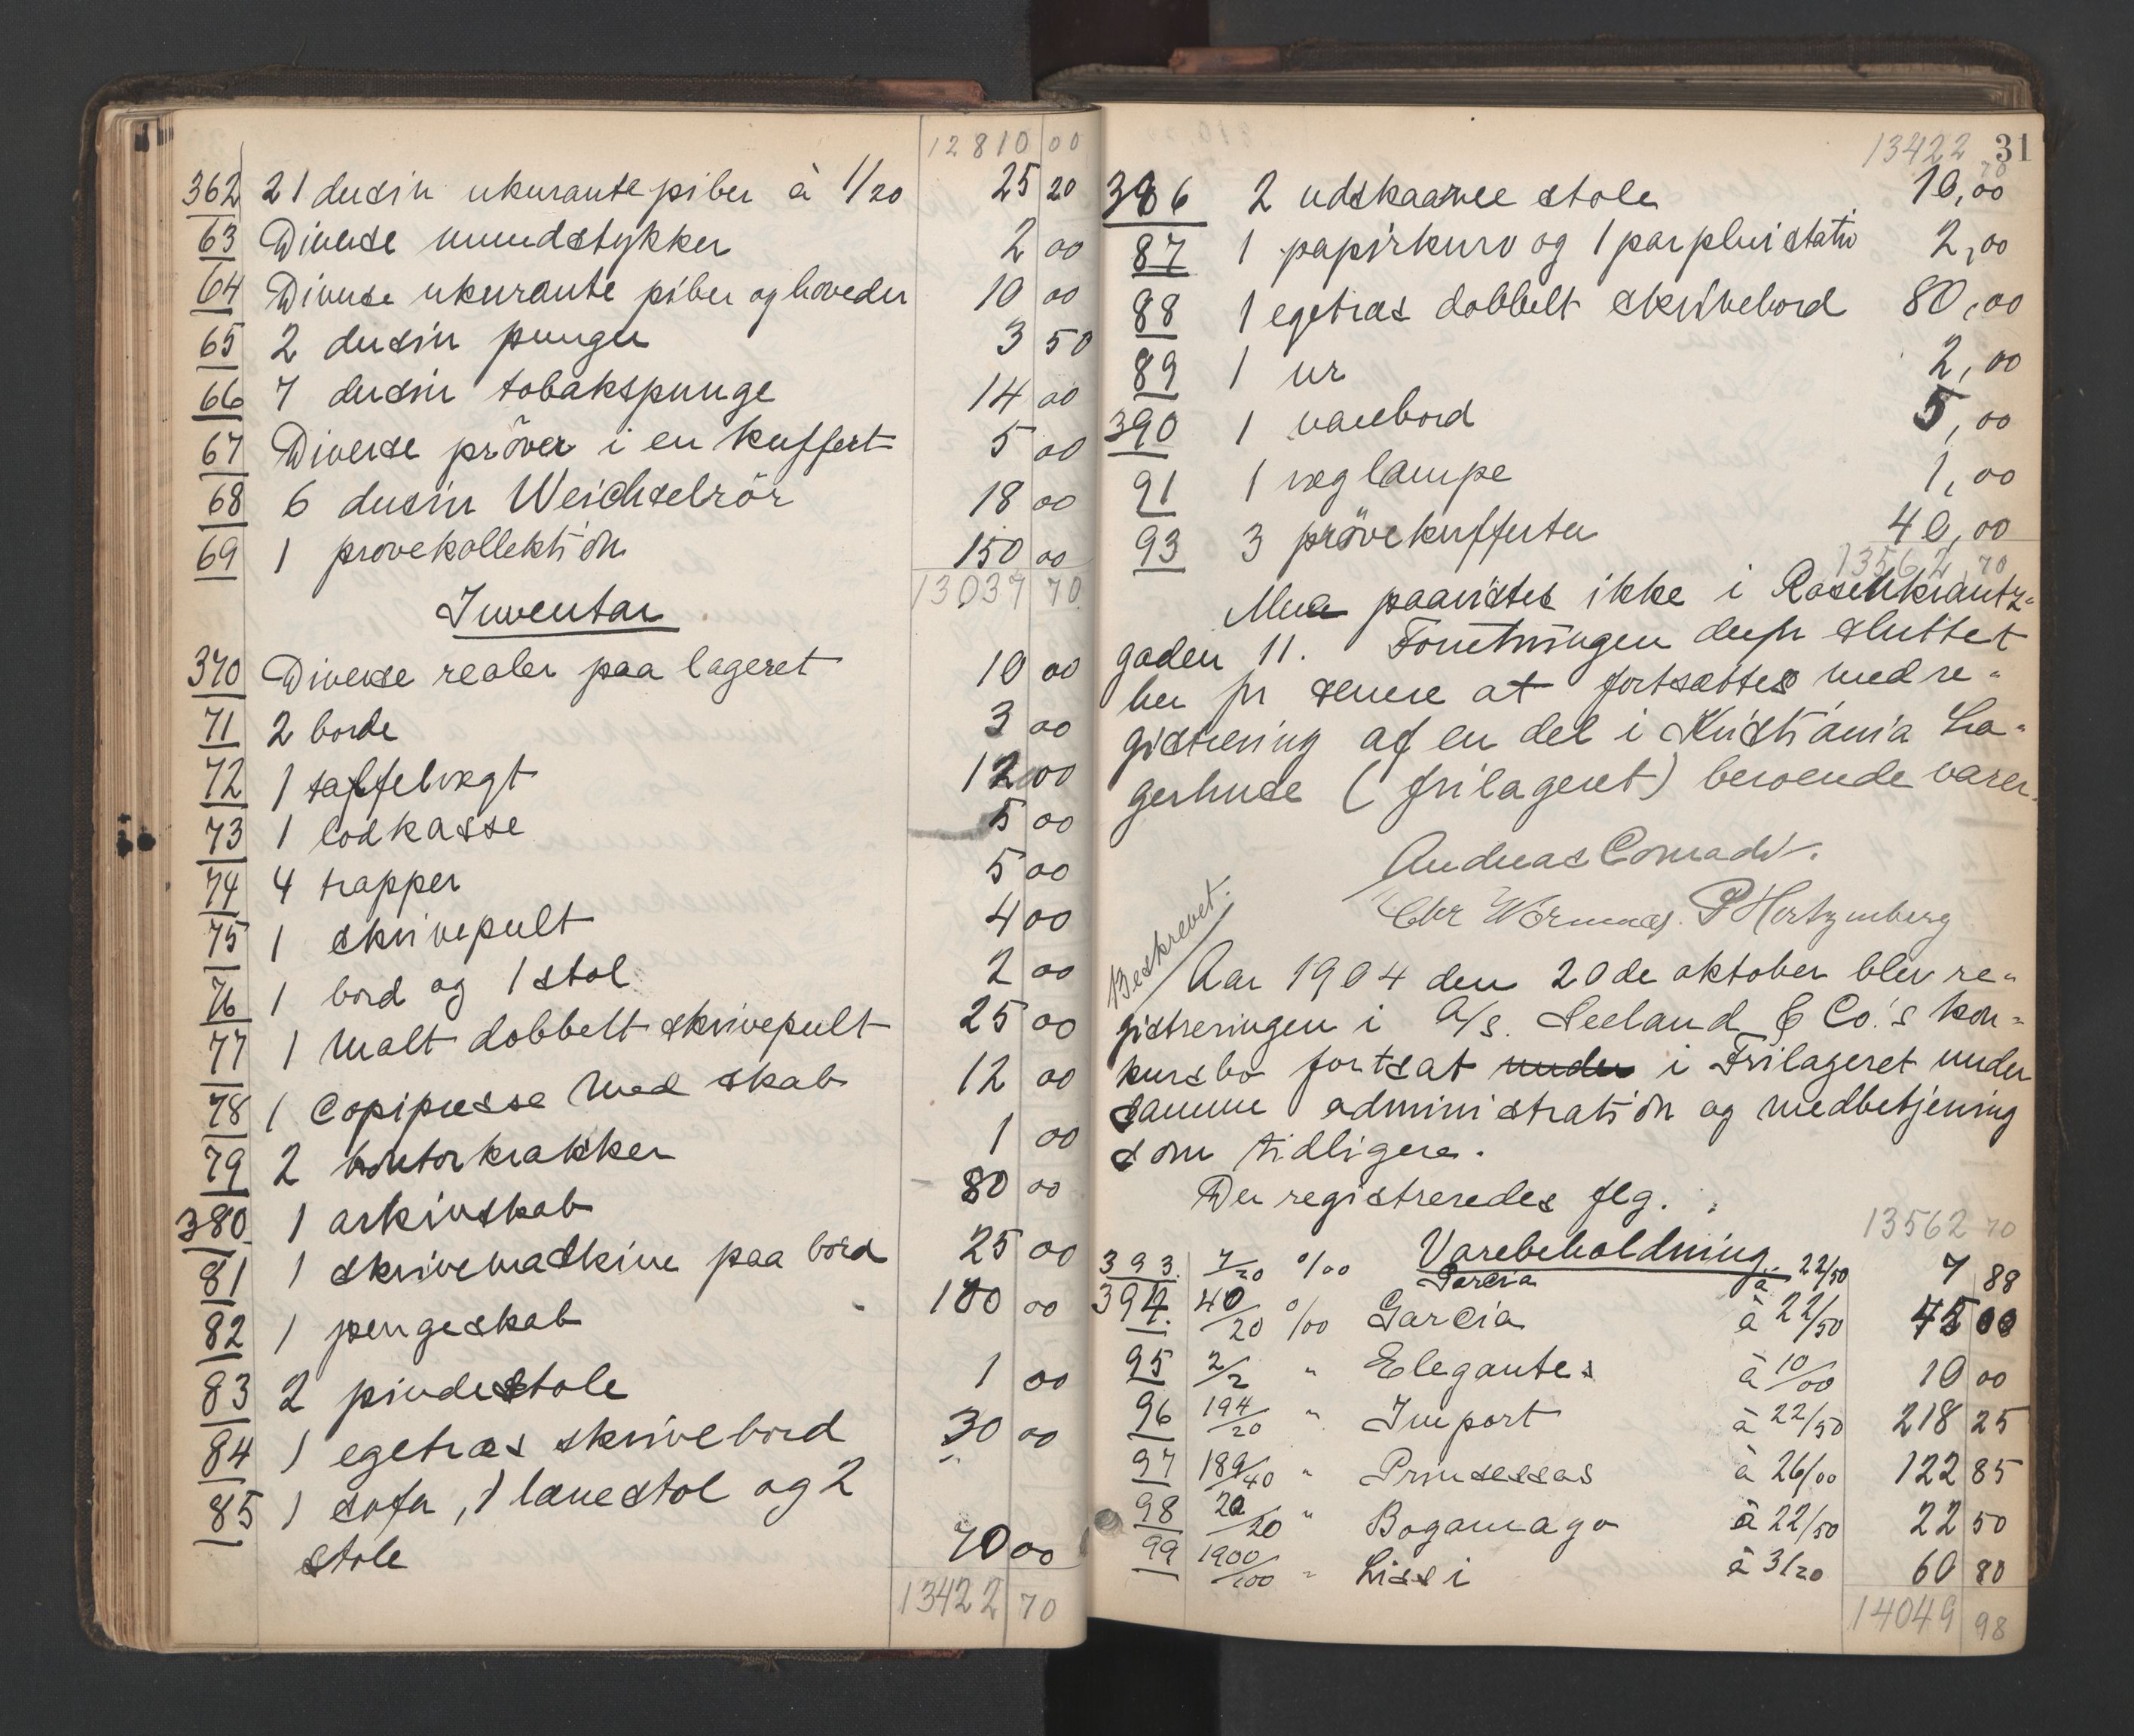 12810 00
362 21 dusin ukurante piber à 1/20 25 20
63 Diverse mundstykker 2 00
64 Diverse ukurante piber og hoveder 10 00
65 2 dusin punger 3 50
66 7 dusin tobakspunge 14 00
67 Diverse prøver i en kuffert 5 00
68 6 dusin Weichselrör 18 00
69 1 prøvekollektion 150 00
13037 70
Inventar
370 Diverse reoler paa lageret 10 00
71 2 borde 3 00
72 1 taffelvægt 12 00
73 1 lodkasse 5 00
74 4 trapper 5 00
75 1 skrivepult 4 00
76 1 bord og 1 stol 2 00
77 1 malt dobbelt skrivepult 25 00
78 1 Copipresse med skab 12 00
79 2 kontorkrakker 1 00
380 1 arkivskab 80 00
81 1 skrivemaskine paa bord 25 00
82 1 pengeskab 100 00
83 2 pindestole 1 00
84 1 egetræs skrivebord 30 00
85 1 sofa, 1 lænestol og 2
stole 70 00
13422 70
31
13422 70
386 2 udskaarne stole 10,00
87 1 papirkurv og 1 parpluistativ 2,00
88 1 egetræs dobbelt skrivebord 80,00
89 1 ur 2,00
390 1 varebord 5,00
91 1 væglampe 1,00
93 3 prøvekufferter 40,00
13562,70
Mere paavistes ikke i Rosenkrantz-
gaden 11. Forretningen derfor sluttet
her for senere at fortsættes med re-
gistrering af en del i Kristiania La-
gerhuse (frilageret) beroende varer.
Andreas Conradi.
Chr P Hertzenberg
Beskrevet.
Aar 1904 den 20de oktober blev re-
gistreringen i A/s. Seeland & Co.'s kon-
kursbo fortsat under i Frilageret under
samme administration og medbetjening
som tidligere.
Der registreredes flg. :
13562 70
Varebeholdning
393. 7/20 %00 Garcia à 22/50 7 88
394. 40/20 %00 Garcia à 22/50 45 00
95 2/2 " Elegantes à 10/00 10 00
96 194/20 " Import à 22/50 218 25
97 189/40 " Prinsessas à 26/00 122 85
98 20/20 " Bogamago à 22/50 22 50
99 1900/100 " Lissi à 3/20 60 80
14049 98